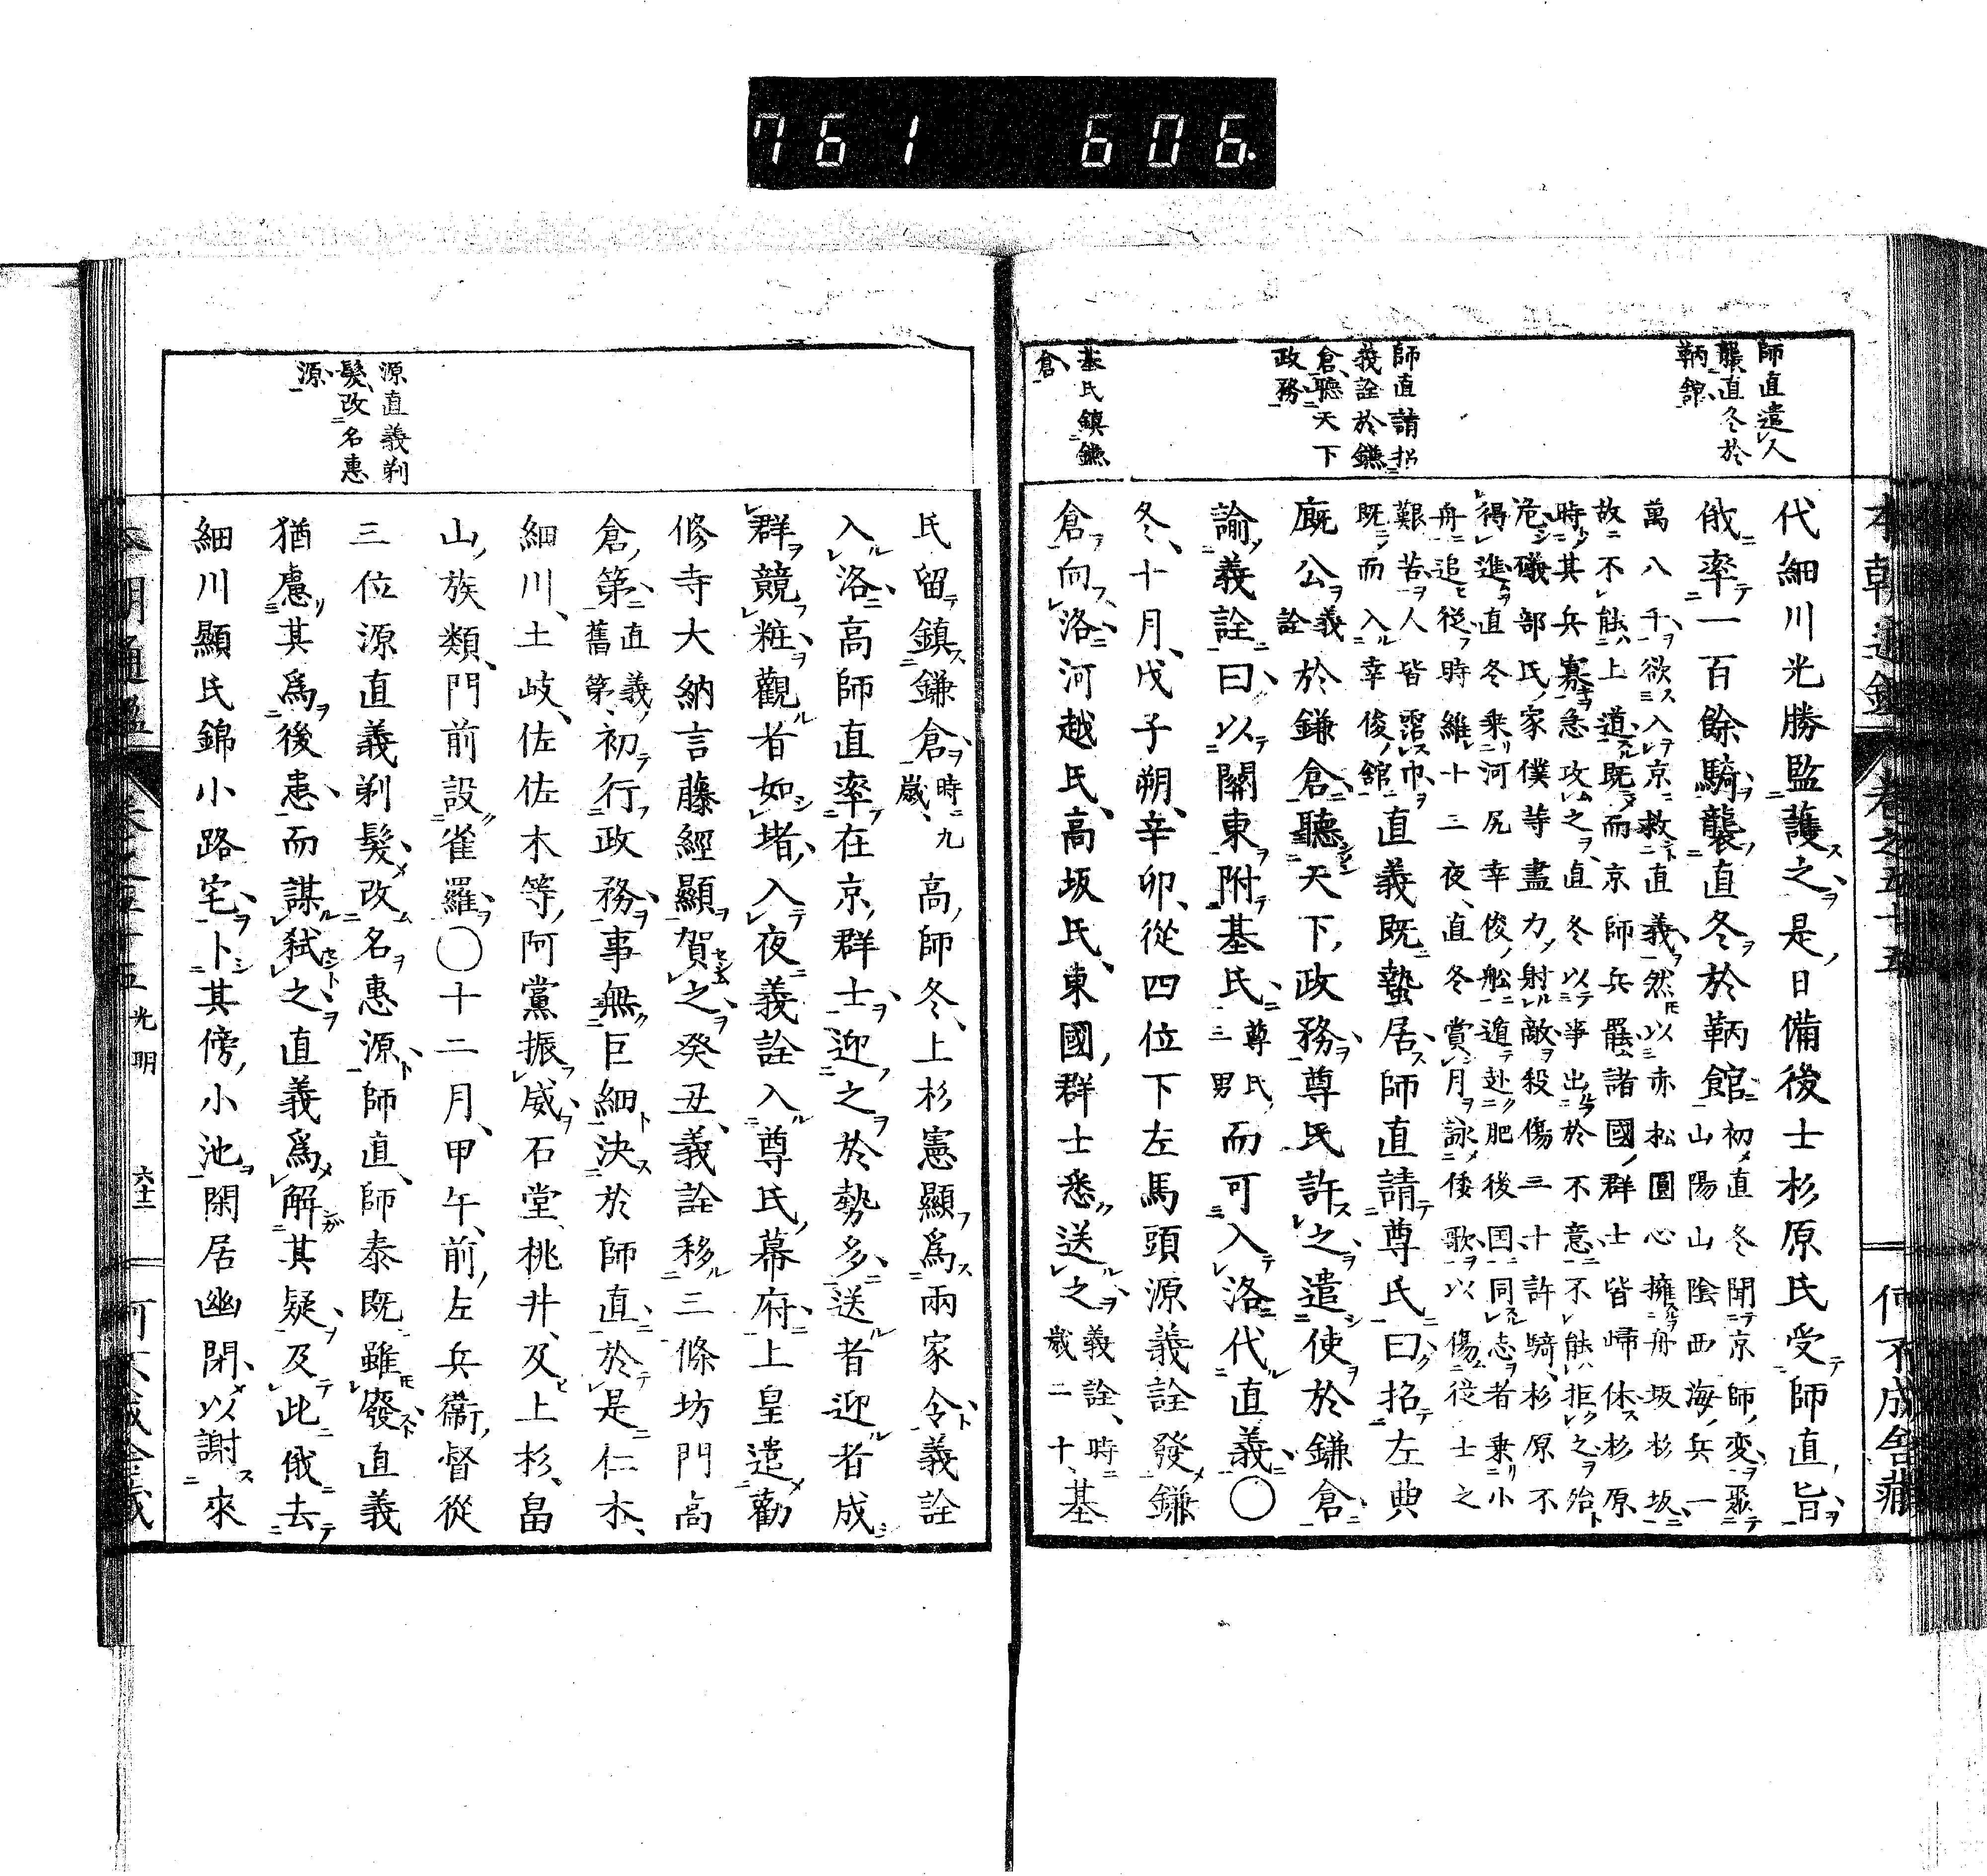 761 606.
本朝通鑑 卷之五十五 何不成舎蔵
師直遣人
襲直冬於
鞆館
師直請招
義詮於鎌
倉聽天下
政務
基氏鎮鎌
倉
代細川光勝監護之是日備後士杉原氏受師直旨
俄率一百餘騎襲直冬於鞆館
初直冬聞京師變聚
山陽山陰西海兵一
萬八千欲入京救直義然以赤松圓心擁舟坂杉坂
故不能上道既而京師兵罷諸國群士皆歸休杉原
時其兵寡急攻之直冬以事出於不意不能拒之殆
危礒部氏家僕等盡力射敵殺傷三十許騎杉原不
得進直冬乘河尻幸俊舩遁赴肥後国同志者乘小
舟追従時維十三夜直冬賞月詠倭歌以傷従士之
艱苦人皆霑巾
既而入幸俊館
直義既蟄居師直請尊氏曰招左典
廐公義詮於鎌倉聽天下政務尊氏許之遣使於鎌倉
諭義詮曰以關東附基氏尊氏三男而可入洛代直義〇
冬十月戊子朔辛卯從四位下左馬頭源義詮發鎌
倉向洛河越氏高坂氏東國群士悉送之義詮時歳二十基
源直義剃
髮改名惠
源
氏留鎮鎌倉時九歳高師冬上杉憲顯爲兩家令義詮
入洛高師直率在京群士迎之於勢多送者迎者成
群競粧觀者如堵入夜義詮入尊氏幕府上皇遣勸
修寺大納言藤經顯賀之癸丑義詮移三條坊門高
倉第直義舊第初行政務事無巨細決於師直於是仁木
細川土岐佐佐木等阿黨振威石堂桃井及上杉畠
山族類門前設雀羅〇十二月甲午前左兵衞督從
三位源直義剃髮改名惠源師直師泰既雖廢直義
猶慮其爲後患而謀弑之直義爲解其疑及此俄去
細川顯氏錦小路宅卜其傍小池閑居幽閉以謝來
本朝通鑑 卷之五十五 光明 六十二 何不成舎蔵